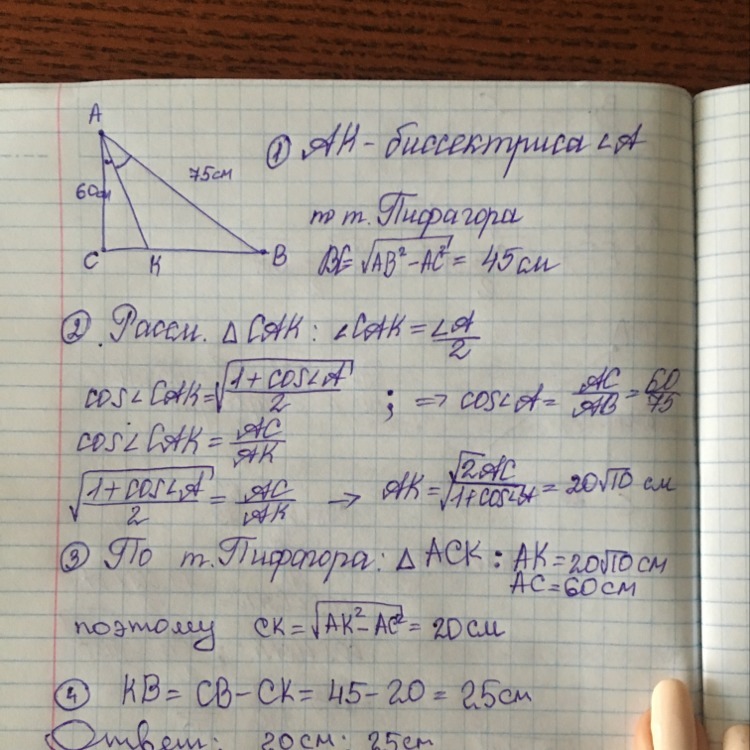 A
① AK - биссектриса ∠A
75см
60см
по т. Пифагора
C K B
BC = √(AB² - AC²) = 45 см
② Рассм. △ CAK : ∠CAK = ∠A/2
cos∠CAK = √((1+cos∠A)/2) ; ⇒ cos∠A = AC/AB = 60/75
cos∠CAK = AC/AK
√((1+cos∠A)/2) = AC/AK → AK = √2AC/√(1+cos∠A) = 20√10 см
③ По т. Пифагора: △ ACK : AK = 20√10 см
AC = 60 см
поэтому CK = √(AK² - AC²) = 20 см
④ KB = CB - CK = 45 - 20 = 25 см
Ответ: 20см; 25см